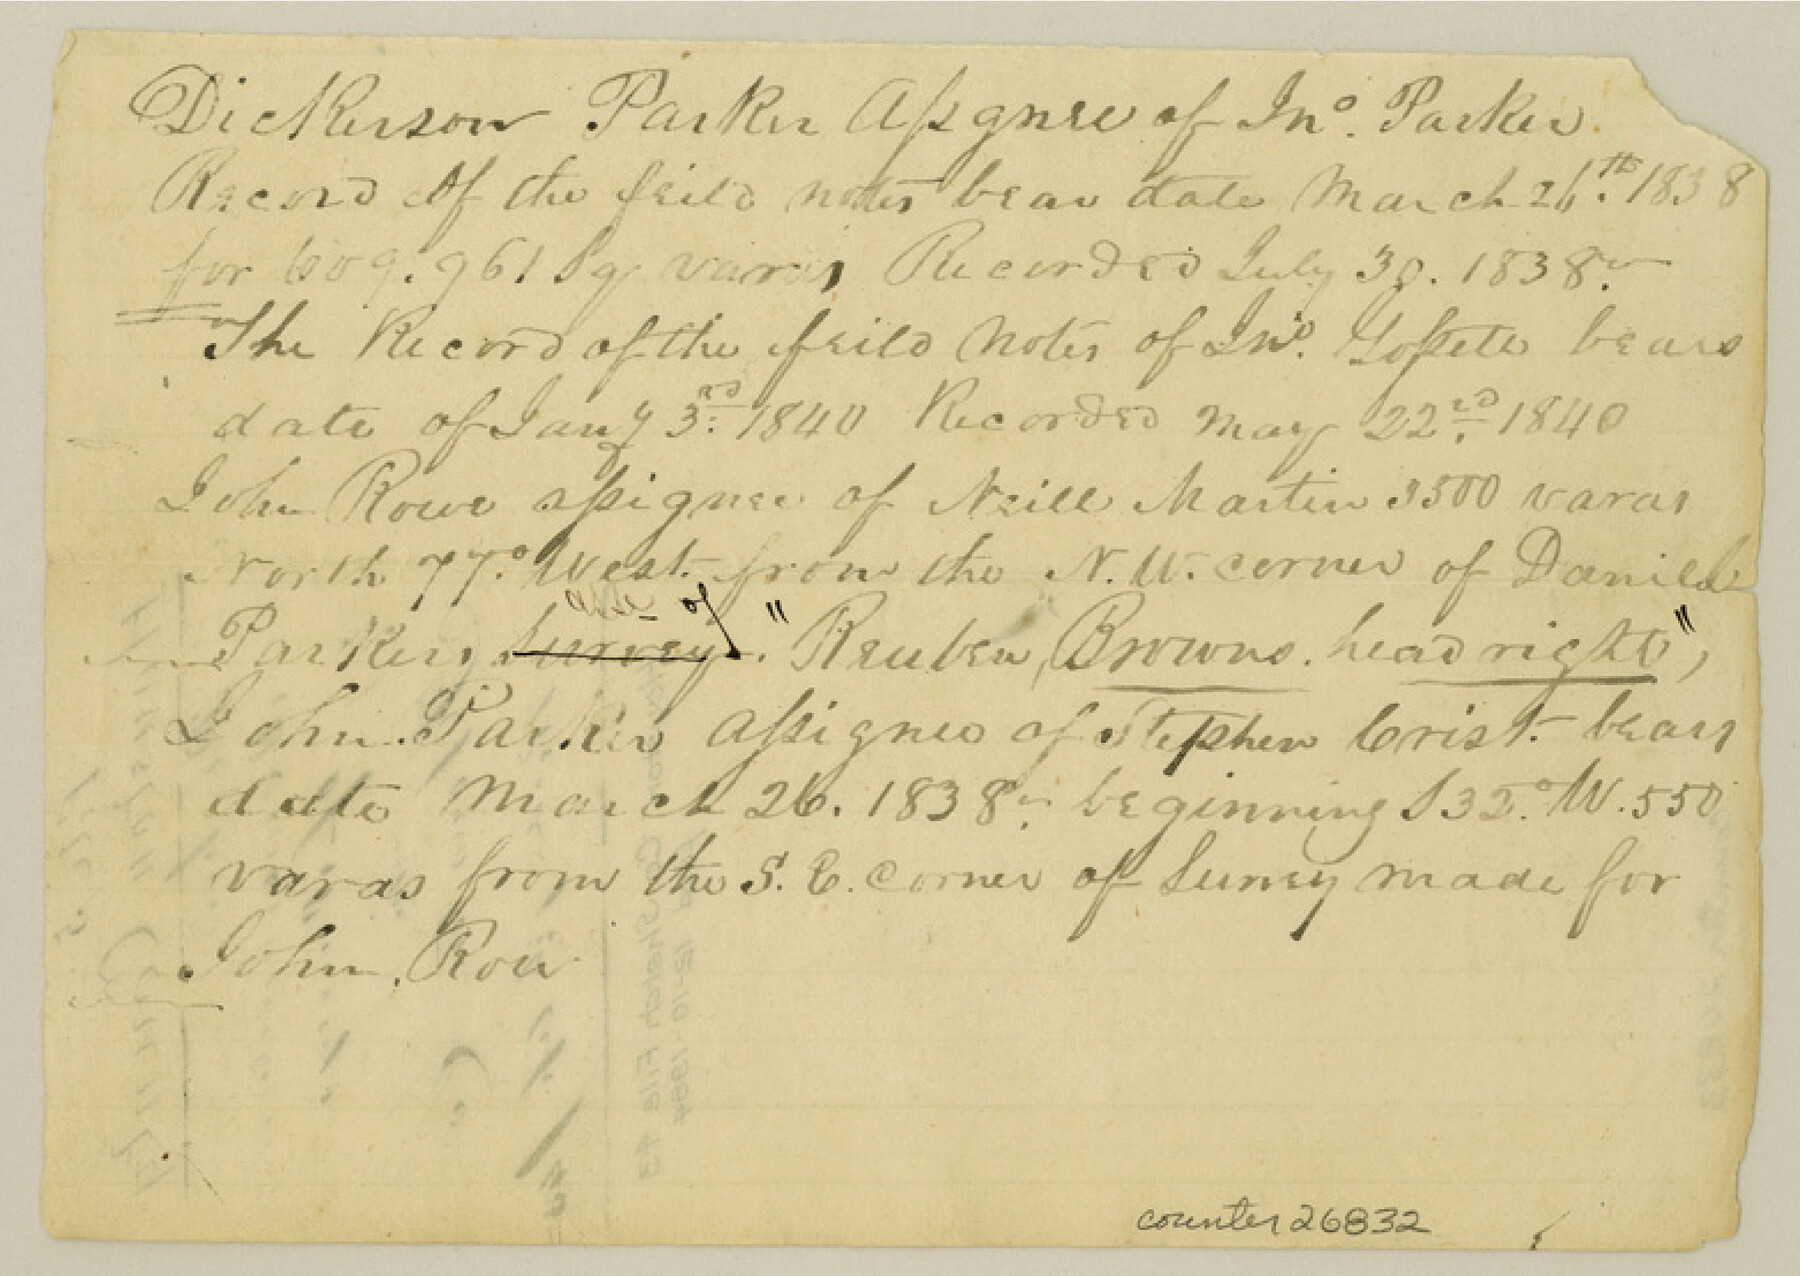 Dickerson Parker Assgnee of Jno. Parker
Record of the feild notes bear date March 26th. 1838
for 609.961 Sq varas Recorded July 30. 1838.
The Record of the feild Notes of Jno. Gossete bears
date of Jany 3rd. 1840 Recorded May 22nd. 1840
John Rowe assignee of Neill Martin 3500 varas
North 77° West from the N.W. corner of Daniel
asse of
Parkers survey. "Reuben Browns. head right",
John. Parker assignee of Stephen Crist. bears
date March 26. 1838. beginning S 32.° W. 550
varas from the S. E. corner of Survey made for
John. Row
counter 26832
12-10-1984